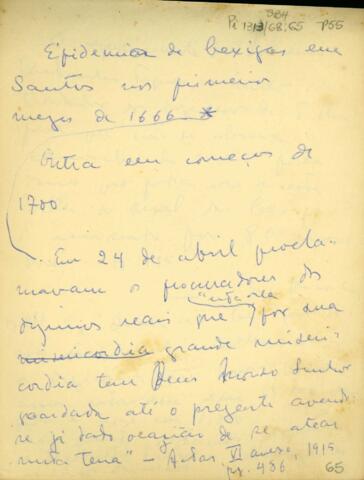 384
Pi 133/68;65 P55
Epidemia de bexigas em
Santos nos primeiros
mezes de 1666 *
Outra em começos de
1700.
Em 24 de abril procla-
mavam o procuradores dos
dizimos reais que "esta villa por sua
misericordia grande miseri-
cordia tem Deus Nosso Senhor
guardada até o presente avendo
se já dado ocasião de se atear
nesta terra" - Actas VI anexo, 1915
pg. 486,
65